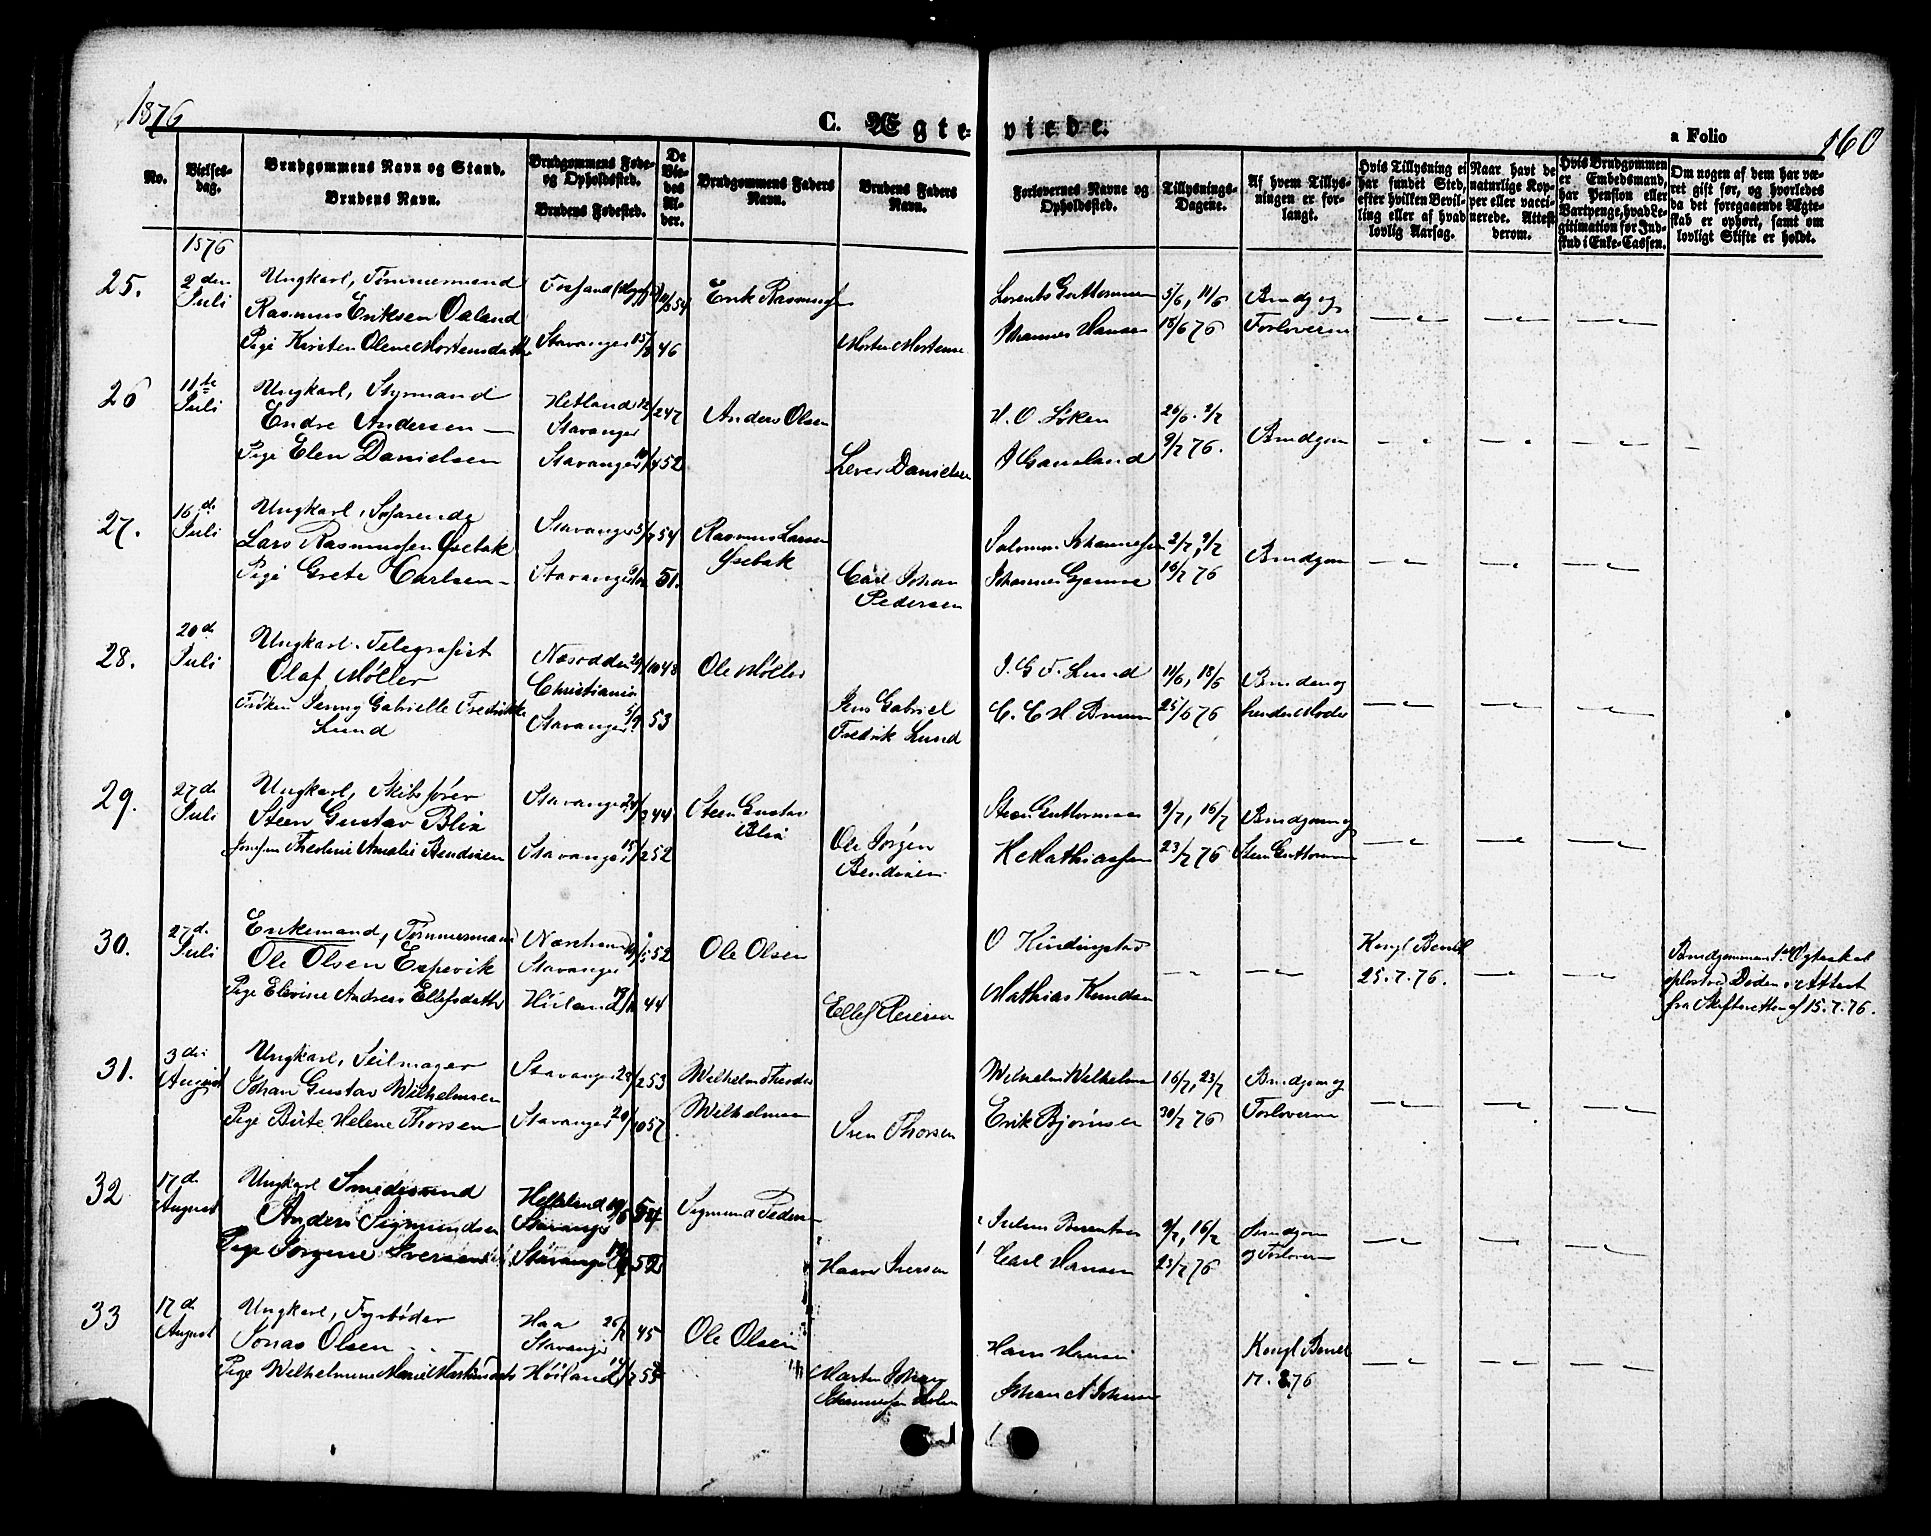 1876
C. Ægte- viede.
a Folio 160
No.
Vielses-
dag.
Brudgommens Navn og Stand.
Brudens Navn.
Brudgommens Føde-
og Opholdssted.
Brudens Fødested.
De
Vie-
des
Al-
der.
Brudgommens Faders
Navn.
Brudens Faders
Navn.
Forlovernes Navne og
Opholdssted.
Tillysnings-
Dagene.
Af hvem Tillys-
ningen er for-
langt.
Hvis Tillysning ei
har fundet Sted,
efter hvilken Bevil-
ling eller af hvad
lovlig Aarsag.
Naar havt de
naturlige Kop-
per eller vacci-
nerede. Attest
derom.
Hvis Brudgommen
er Embedsmand,
har Pension eller
Vartpenge, hvad Le-
gitimation for Ind-
skud i Enke-Cassen.
Om nogen af dem har væ-
ret gift før, og hvorledes
da det foregaaende Ægte-
skab er ophørt, samt om
lovligt Skifte er holdt.
1876
25.
2den
Juli
Ungkarl, Tømmermand
Rasmus Eriksen Oaland
Pige Kirsten Olene Mortensdatter
Fosfand
Stavanger 15/8 46
Erik Rasmussen
Morten Mortensen
Lorents Guttormsen
Johannes Hansen
5/6, 11/6
18/6 76
Brudg og
Forloverne
26
11te
Juli
Ungkarl, Styrmand
Endre Andersen
Pige Elen Danielsen
Hetland 12/2 47
Stavanger
Stavanger 10/4 52
Anders Olsen
Lever Danielsen
H. O. Løken
26/6. 2/7
9/7 76.
Brudgom
27.
16de
Juli
Ungkarl, Søfarende
Lars Rasmussen Øsebak
Pige Grete Carlsen
Stavanger 3/7 54
Stavanger 51.
Rasmus Larsen
Øsebak
Carl Johan
Pedersen
Salomon Johannessen
Johannes Gjemre
2/7, 9/7
16/7 76
Brudgom
28.
20de
Juli
Ungkarl. Telegrafist
Olaf Møller
Frøken Jenny Gabrielle Fredrikke
Lund
Næsodden 29/10 48
Christiania
Stavanger 5/9 53
Ole Møller
Jens Gabriel
Fredrik Lund
J. G. F. Lund
C. C. H. Bruun
11/6, 18/6
25/6 76
Bruden og
hendes Moder
29.
27de
Juli
Ungkarl, Skibsfører
Steen Gustav Blix
Jomfru Theoline Amalie Bendixen
Stavanger 24/3 44
Stavanger 15/2 52
Steen Gustav
Blix
Ole Jørgen
Bendixen
Steen Guttormsen
K Mathiassen
9/7, 16/7
23/7 76
Brudgom og
Steen Guttormsen
30.
27de
Juli
Enkemand, Tømmermand
Ole Olsen Espevik
Pige Elevine Andrea Ellefsdatter
Næstrand 52
Stavanger
Høiland 44
Ole Olsen
Ellef Reiersen
O Kindingstad
Mathias Knudsen
Kongl Bevill
25.7.76.
Brudgommens 1ste Ægteskab
opløst ved Døden. Attest
fra Skifteretten af 15.7.76.
31.
3die
August
Ungkarl, Seilmager
Johan Gustav Wilhelmsen
Pige Birte Helene Thorsen
Stavanger 28/2 53
Stavanger 20/10 57
Wilhelm Theodor
Wilhelmsen
Sven Thorsen
Wilhelm Wilhelmsen
Erik Bjørnsen
16/7, 23/7
30/7 76
Brudgom og
Forloverne
32
17de
August
Ungkarl Smedsvend
Anders Sigmundsen
Pige Jørgine Iversen
Hetland 54
Stavanger
Stavanger 52
Sigmund Pedersen
Haaver Iversen
Julius Berentsen
Carl Hansen
9/7, 16/7
23/7 76
Brudgom
og Forloverne
33
17de
August
Ungkarl, Fyrbøder
Jonas Olsen
Pige Wilhelmine Marie Martinsdatter
Haa 26/2 45
Stavanger
Høiland 55
Ole Olsen
Martin Johan
Johannessen Holen
Hans Hansen
Johan A Johnsen
Kongl Bevill
17.8.76